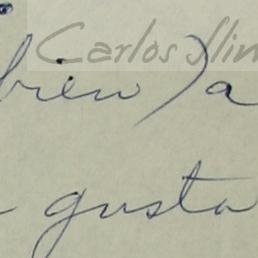 Carlos Slim
bien) a
gusta